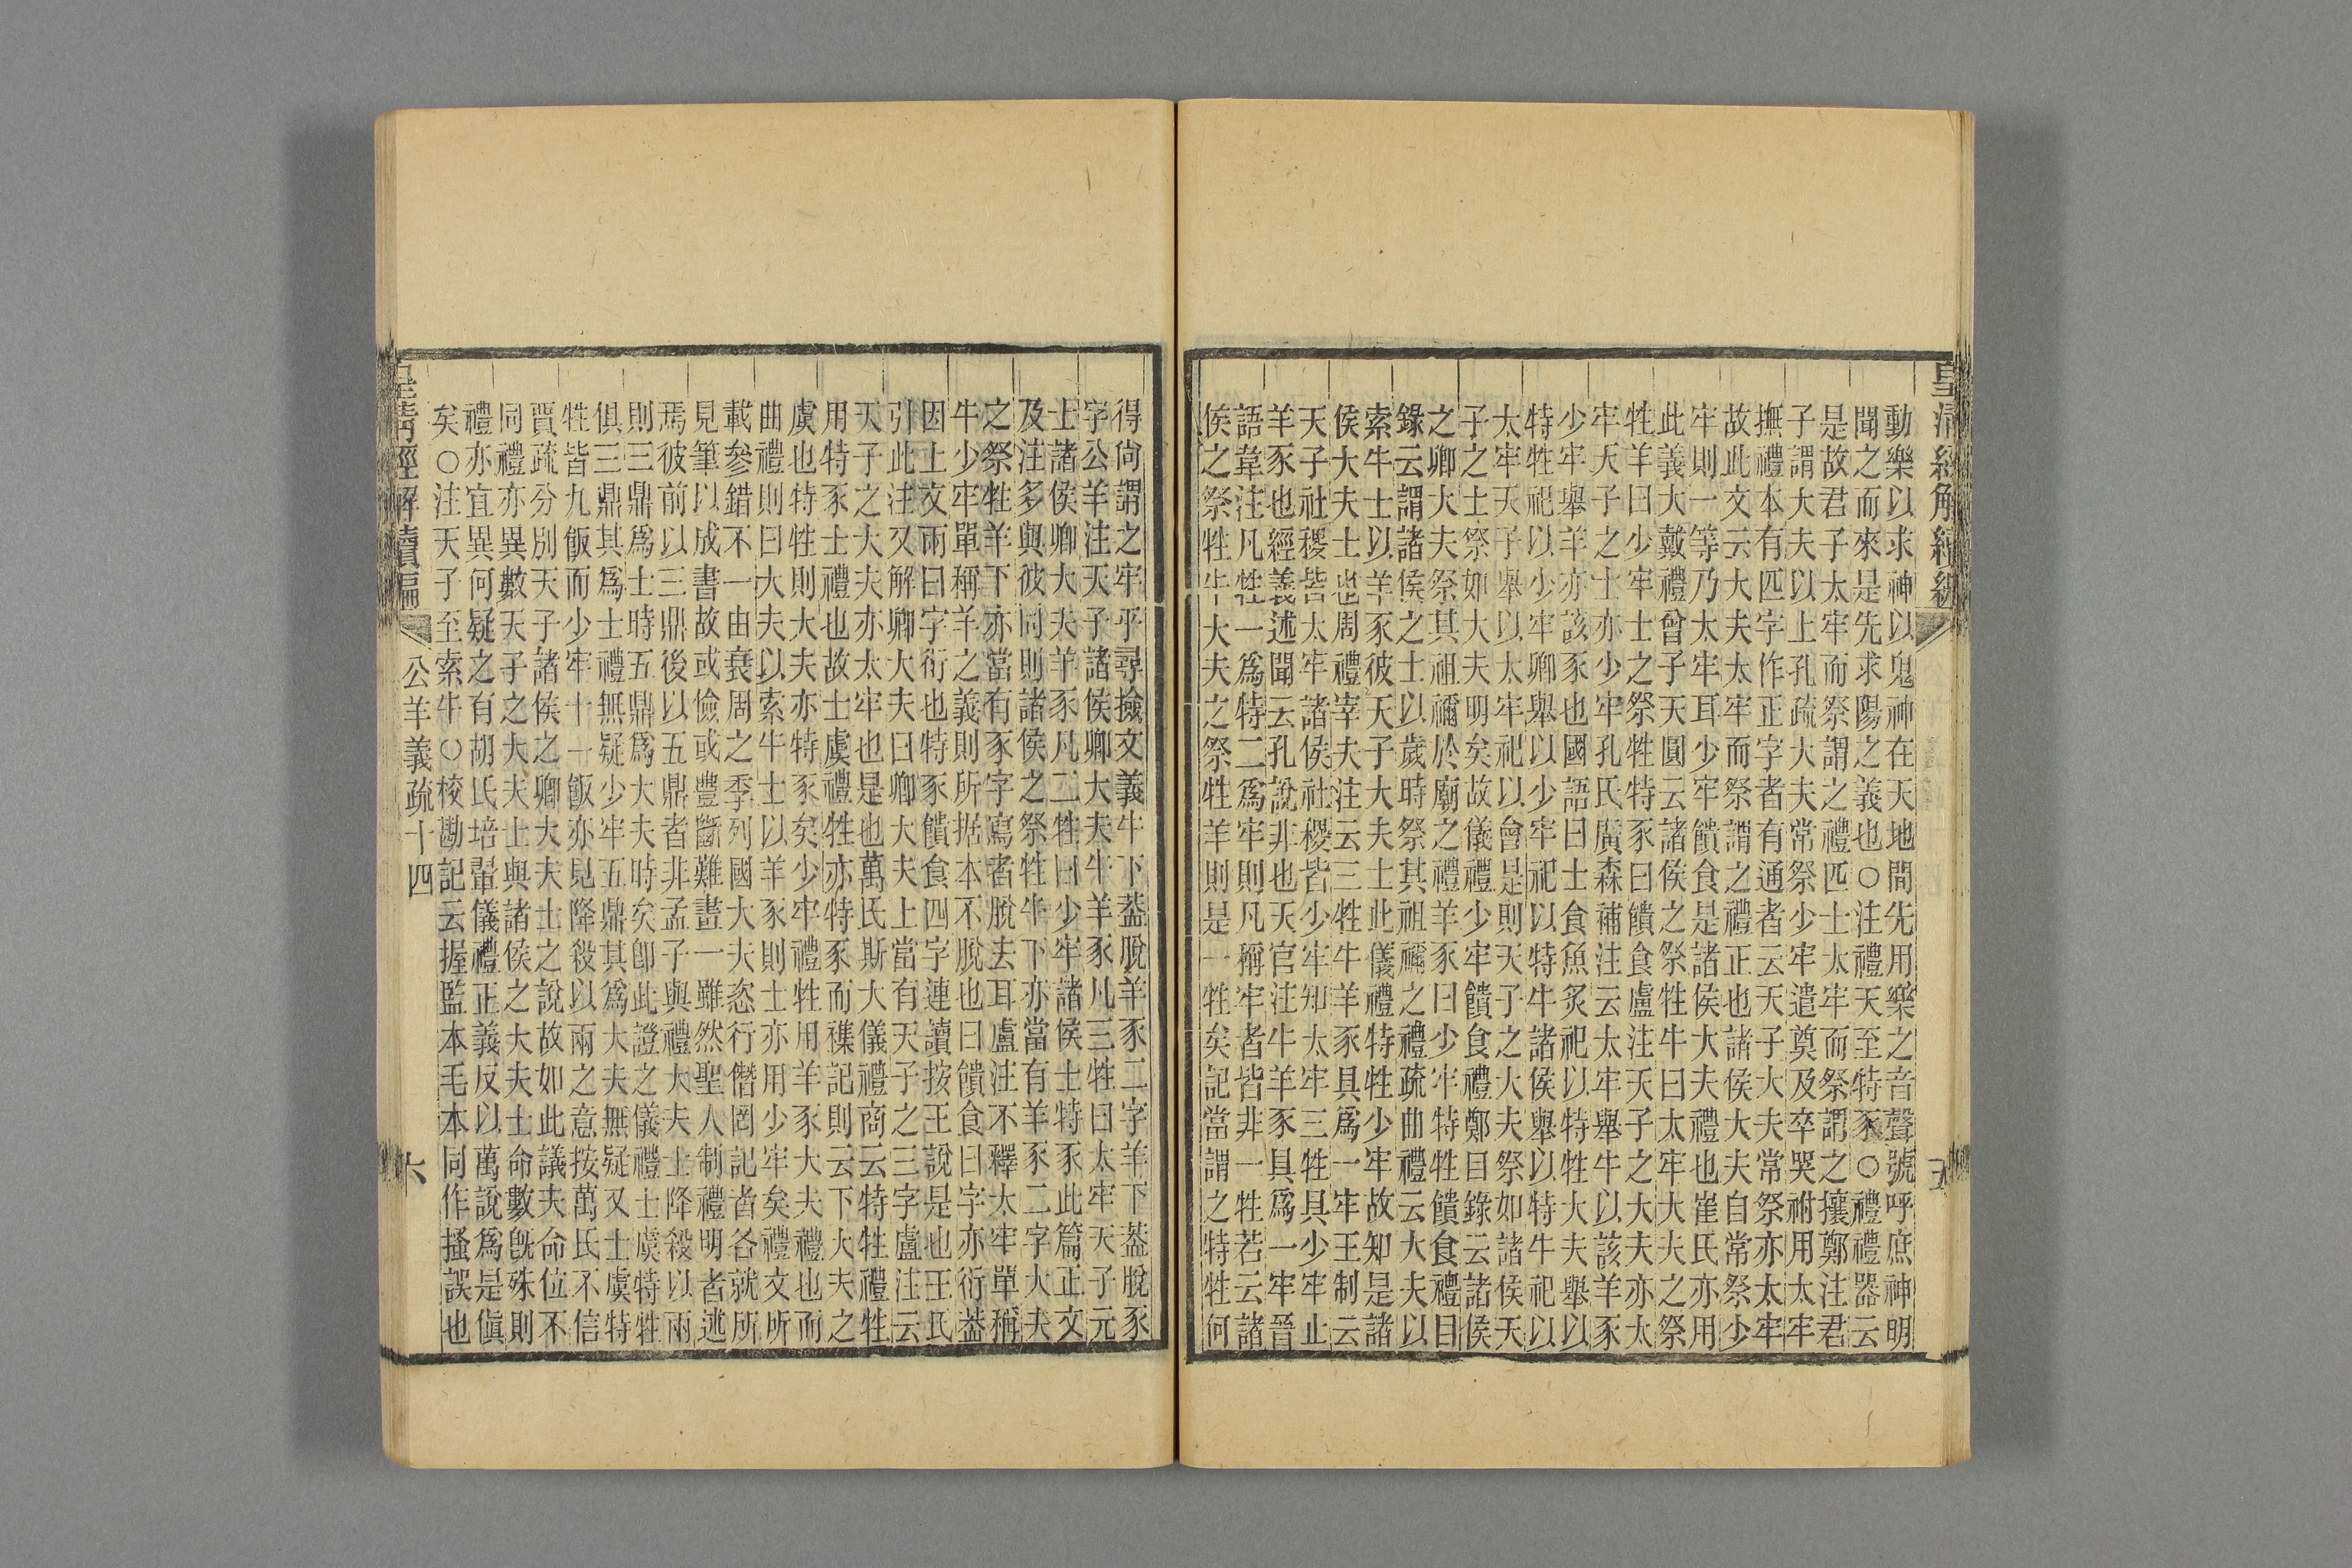 皇清經解續編
動樂以求神以鬼神在天地間先用樂之音聲號呼庶神明
聞之而來是先求陽之義也○注禮天至特豕○禮禮器云
是故君子太牢而祭謂之禮匹士太牢而祭謂之攘鄭注君
子謂大夫以上孔疏大夫常祭少牢遣奠及卒哭祔用太牢
撫禮本有匹字作正字者有通者云天子大夫常祭亦太牢
故此文云大夫太牢而祭謂之禮正也諸侯大夫自常祭少
牢則一等乃太牢耳少牢饋食是諸侯大夫禮也崔氏亦用
此義大戴禮曾子天圓云諸侯之祭牲牛曰太牢大夫之祭
牲羊曰少牢士之祭牲特豕曰饋食盧注天子之大夫亦太
牢天子之士亦少牢孔氏廣森補注云太牢舉牛以該羊豕
少牢舉羊亦該豕也國語曰士食魚炙祀以特牲大夫舉以
特牲祀以少牢卿舉以少牢祀以特牛諸侯舉以特牛祀以
太牢天子舉以太牢祀以會是則天子之大夫祭如諸侯天
子之士祭如大夫明矣故儀禮少牢饋食禮鄭目錄云諸侯
之卿大夫祭其祖禰於廟之禮羊豕曰少牢特牲饋食禮目
錄云謂諸侯之士以歲時祭其祖禰之禮疏曲禮云大夫以
索牛士以羊豕彼天子大夫士此儀禮特牲少牢故知是諸
侯大夫士也周禮宰夫注云三牲牛羊豕具爲一牢王制云
天子社稷皆太牢諸侯社稷皆少牢知太牢三牲具少牢止
羊豕也經義述聞云孔說非也天官注牛羊豕具爲一牢晉
語韋注凡牲一爲特二爲牢則凡稱牢者皆非一牲若云諸
侯之祭牲牛大夫之祭牲羊則是一牲矣記當謂之特牲何
得尚謂之牢乎尋撿文義牛下葢脫羊豕二字羊下葢脫豕
字公羊注天子諸侯卿大夫牛羊豕凡三牲曰太牢天子元
士諸侯卿大夫羊豕凡二牲曰少牢諸侯士特豕此篇正文
及注多與彼同則諸侯之祭牲牛下亦當有羊豕二字大夫
之祭牲羊下亦當有豕字寫者脫去耳盧注不釋太牢單稱
牛少牢單稱羊之義則所据本不脫也曰饋食曰字亦衍葢
因上文兩曰字衍也特豕饋食四字連讀按王說是也王氏
引此注又解卿大夫曰卿大夫上當有天子之三字盧注云
天子之大夫亦太牢也是也萬氏斯大儀禮商云特牲禮牲
用特豕士禮也故士虞禮牲亦特豕而襍記則云下大夫之
虞也特牲則大夫亦特豕矣少牢禮牲用羊豕大夫禮也而
曲禮則曰大夫以索牛士以羊豕則士亦用少牢矣禮文所
載參錯不一由衰周之季列國大夫恣行僭罔記者各就所
見筆以成書故或儉或豐斷難畫一雖然聖人制禮明者述
焉彼前以三鼎後以五鼎者非孟子與禮大夫士降殺以兩
則三鼎爲士時五鼎爲大夫時矣卽此證之儀禮士虞特牲
俱三鼎其爲士禮無疑少牢五鼎其爲大夫無疑又士虞特
牲皆九飯而少牢十一飯亦見降殺以兩之意按萬氏不信
賈疏分別天子諸侯之卿大夫士之說故如此議夫命位不
同禮亦異數天子之大夫士與諸侯之大夫士命數旣殊則
禮亦宜異何疑之有胡氏培翬儀禮正義反以萬說爲是傎
矣○注天子至索牛○校勘記云握監本毛本同作搔誤也
皇淸經解續編
公羊義疏十四
六